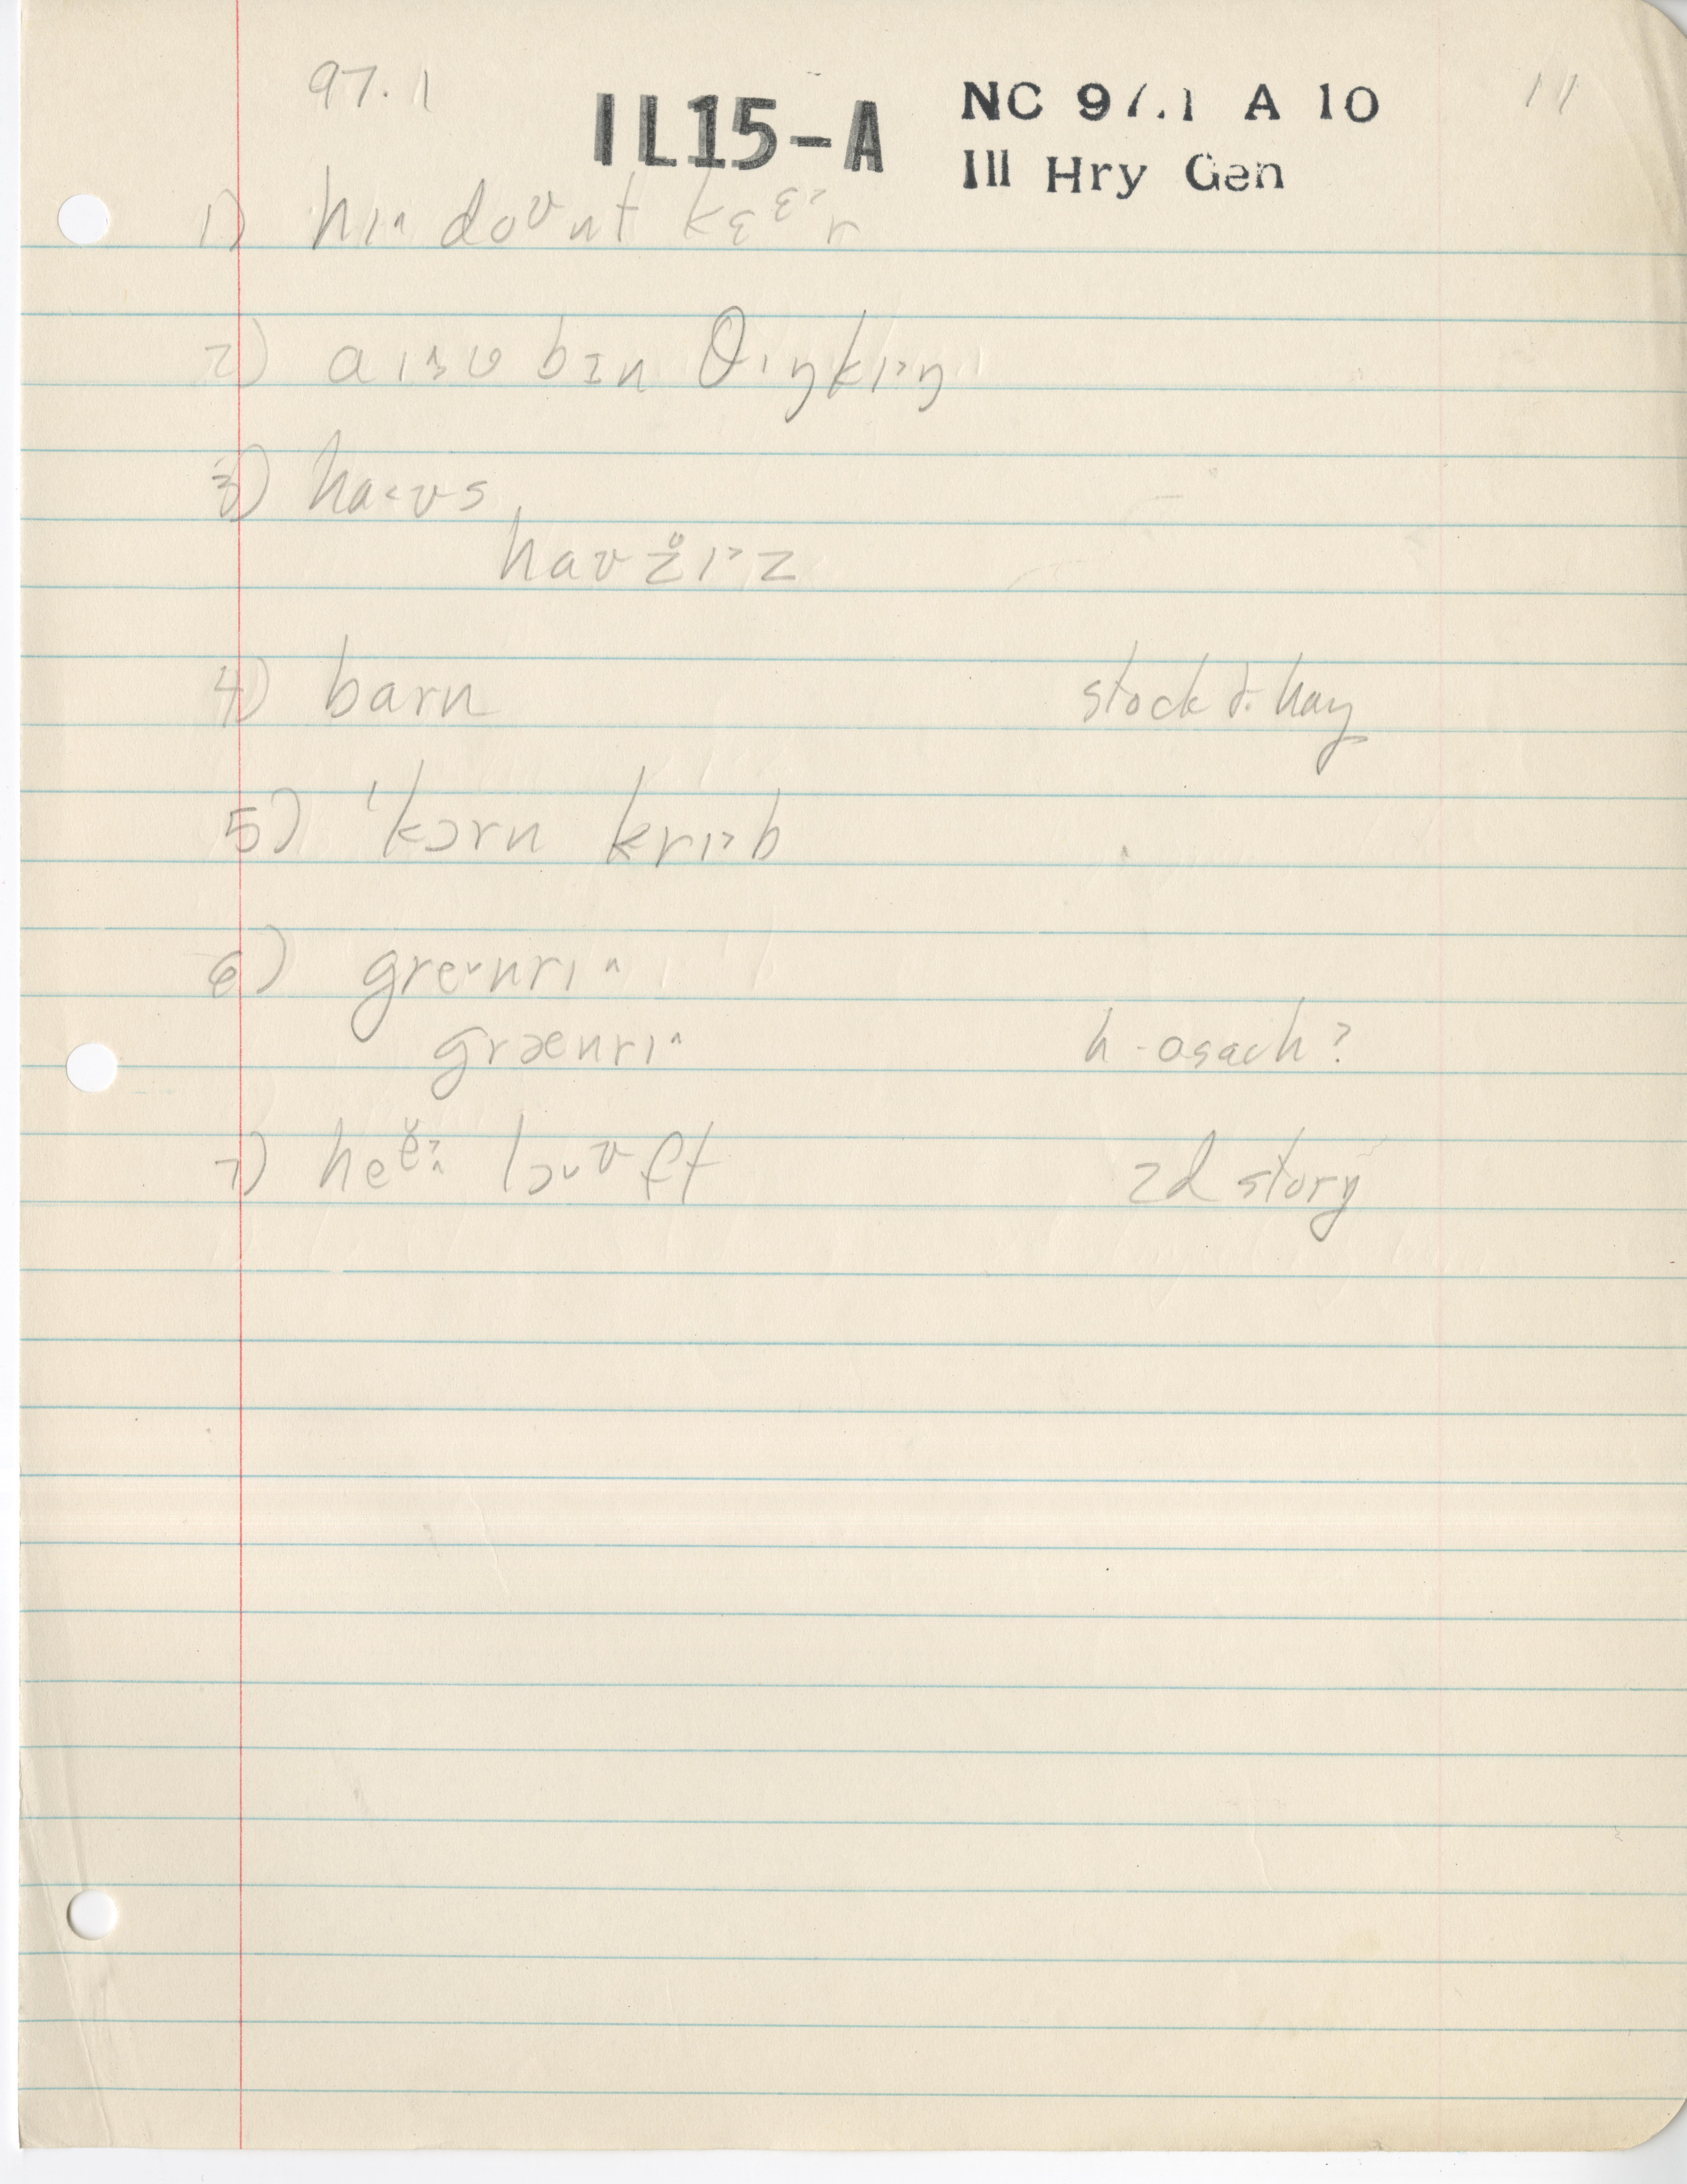 97.1 IL15-A NC 97.1 A 10 11
Ill Hry Gen
1) hɪ˄ doʊnt kɛᵋ˃r
2) aɪ˄ʒʊ bɪn θɪŋkɪ˃ŋ
3) ha˂ʊs
haʊz̊ɪ˃z
4) barn stock & hay
5) ˈkɔrn krɪ˃b
6) gre˅nrɪ˄
grænrɪ˄ h-osach?
7) heĕ˃˄ lɔ˅ʊft 2d story